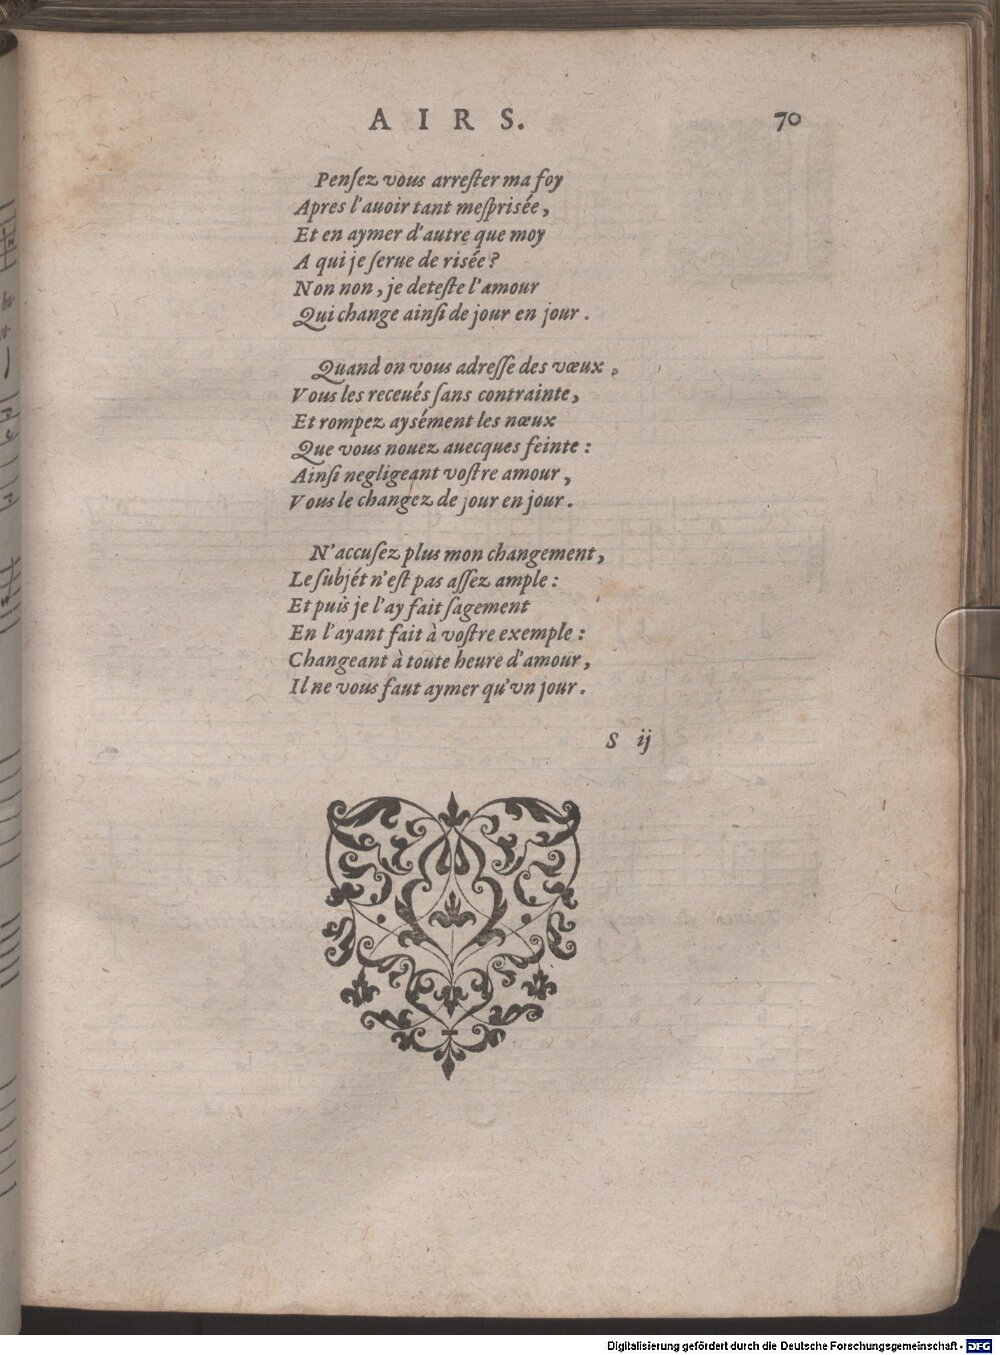 AIRS. 70
Penſez vous arreſter ma foy
Apres l'auoir tant meſprisée,
Et en aymer d'autre que moy
A qui je ſerue de risée?
Non non, je deteſte l'amour
Qui change ainſi de jour en jour.
Quand on vous adreſſe des vœux,
Vous les receués ſans contrainte,
Et rompez aysément les nœux
Que vous nouez auecques feinte:
Ainſi negligeant voſtre amour,
Vous le changez de jour en jour.
N'accuſez plus mon changement,
Le ſubjét n'eſt pas aſſez ample:
Et puis je l'ay fait ſagement
En l'ayant fait à voſtre exemple:
Changeant à toute heure d'amour,
Il ne vous faut aymer qu'vn jour.
S ij
Digitalisierung gefördert durch die Deutsche Forschungsgemeinschaft - DFG